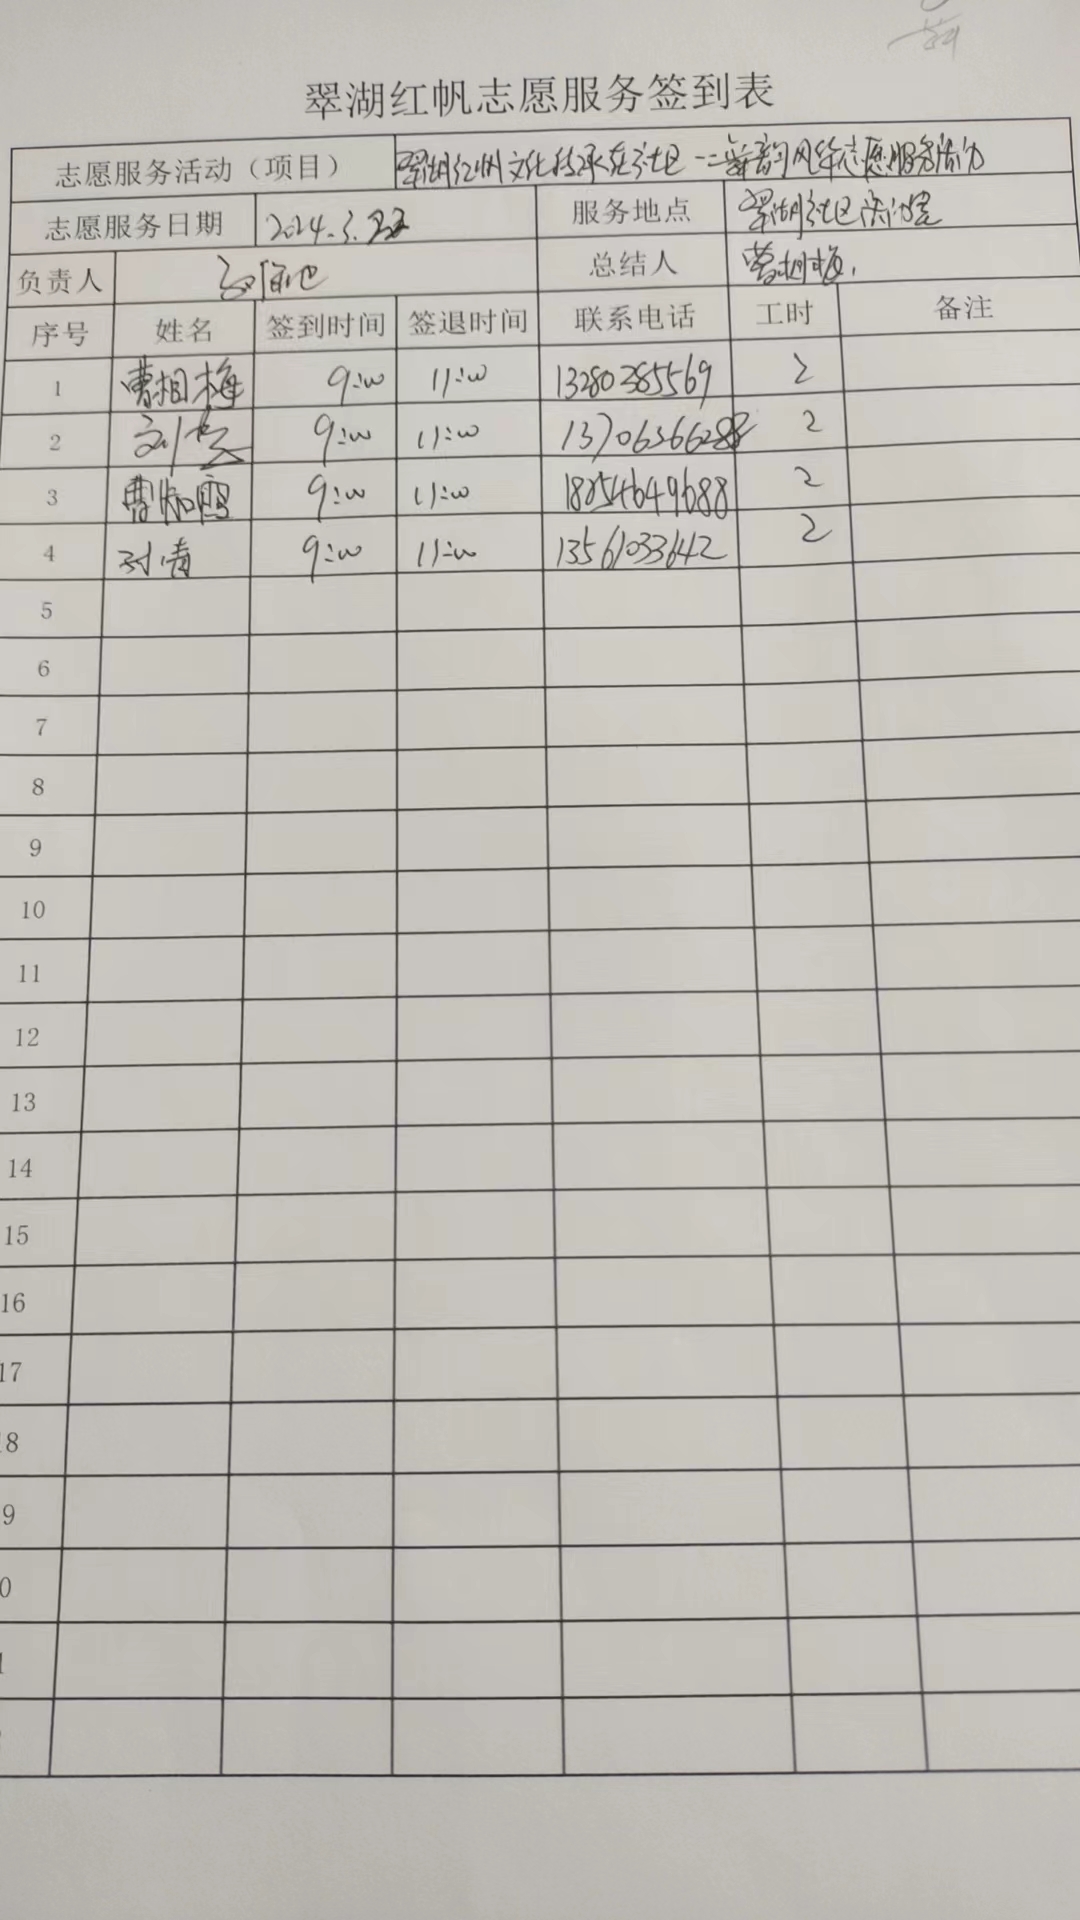 翠湖红帆志愿服务签到表
志愿服务活动（项目） 翠湖红帆文化传承在社区一二舞韵风华志愿服务活动
志愿服务日期 2024.3. 服务地点 翠湖社区活动室
负责人 总结人 曹相梅
序号 姓名 签到时间 签退时间 联系电话 工时 备注
1 曹相梅 9:00 11:00 13280385569 2
2 刘 9:00 11:00 2
3 曹 9:00 11:00 18254649688 2
4 刘青 9:00 11:00 13561033642 2
5
6
7
8
9
10
11
12
13
14
15
16
17
8
9
0
1